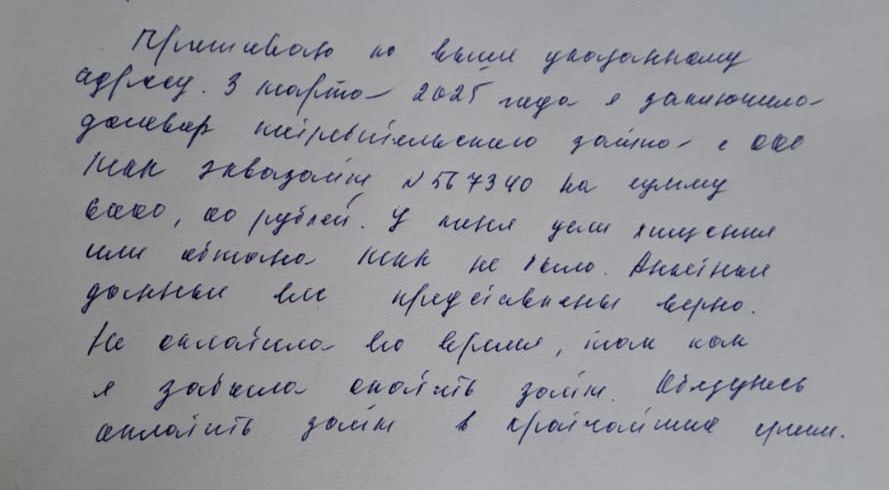 Проживаю по выше указанному
адресу. 3 марта 2025 года я заключила
договор потребительского займа с ООО
МКК Эквазайм №567340 на сумму
000, 00 рублей. У меня цели хищения
или обмана МКК не было. Анкетные
данные все предоставлены верно.
Не оплатила во время, так как
я забыла оплатить займ. Обязуюсь
оплатить займ в кратчайшие сроки.